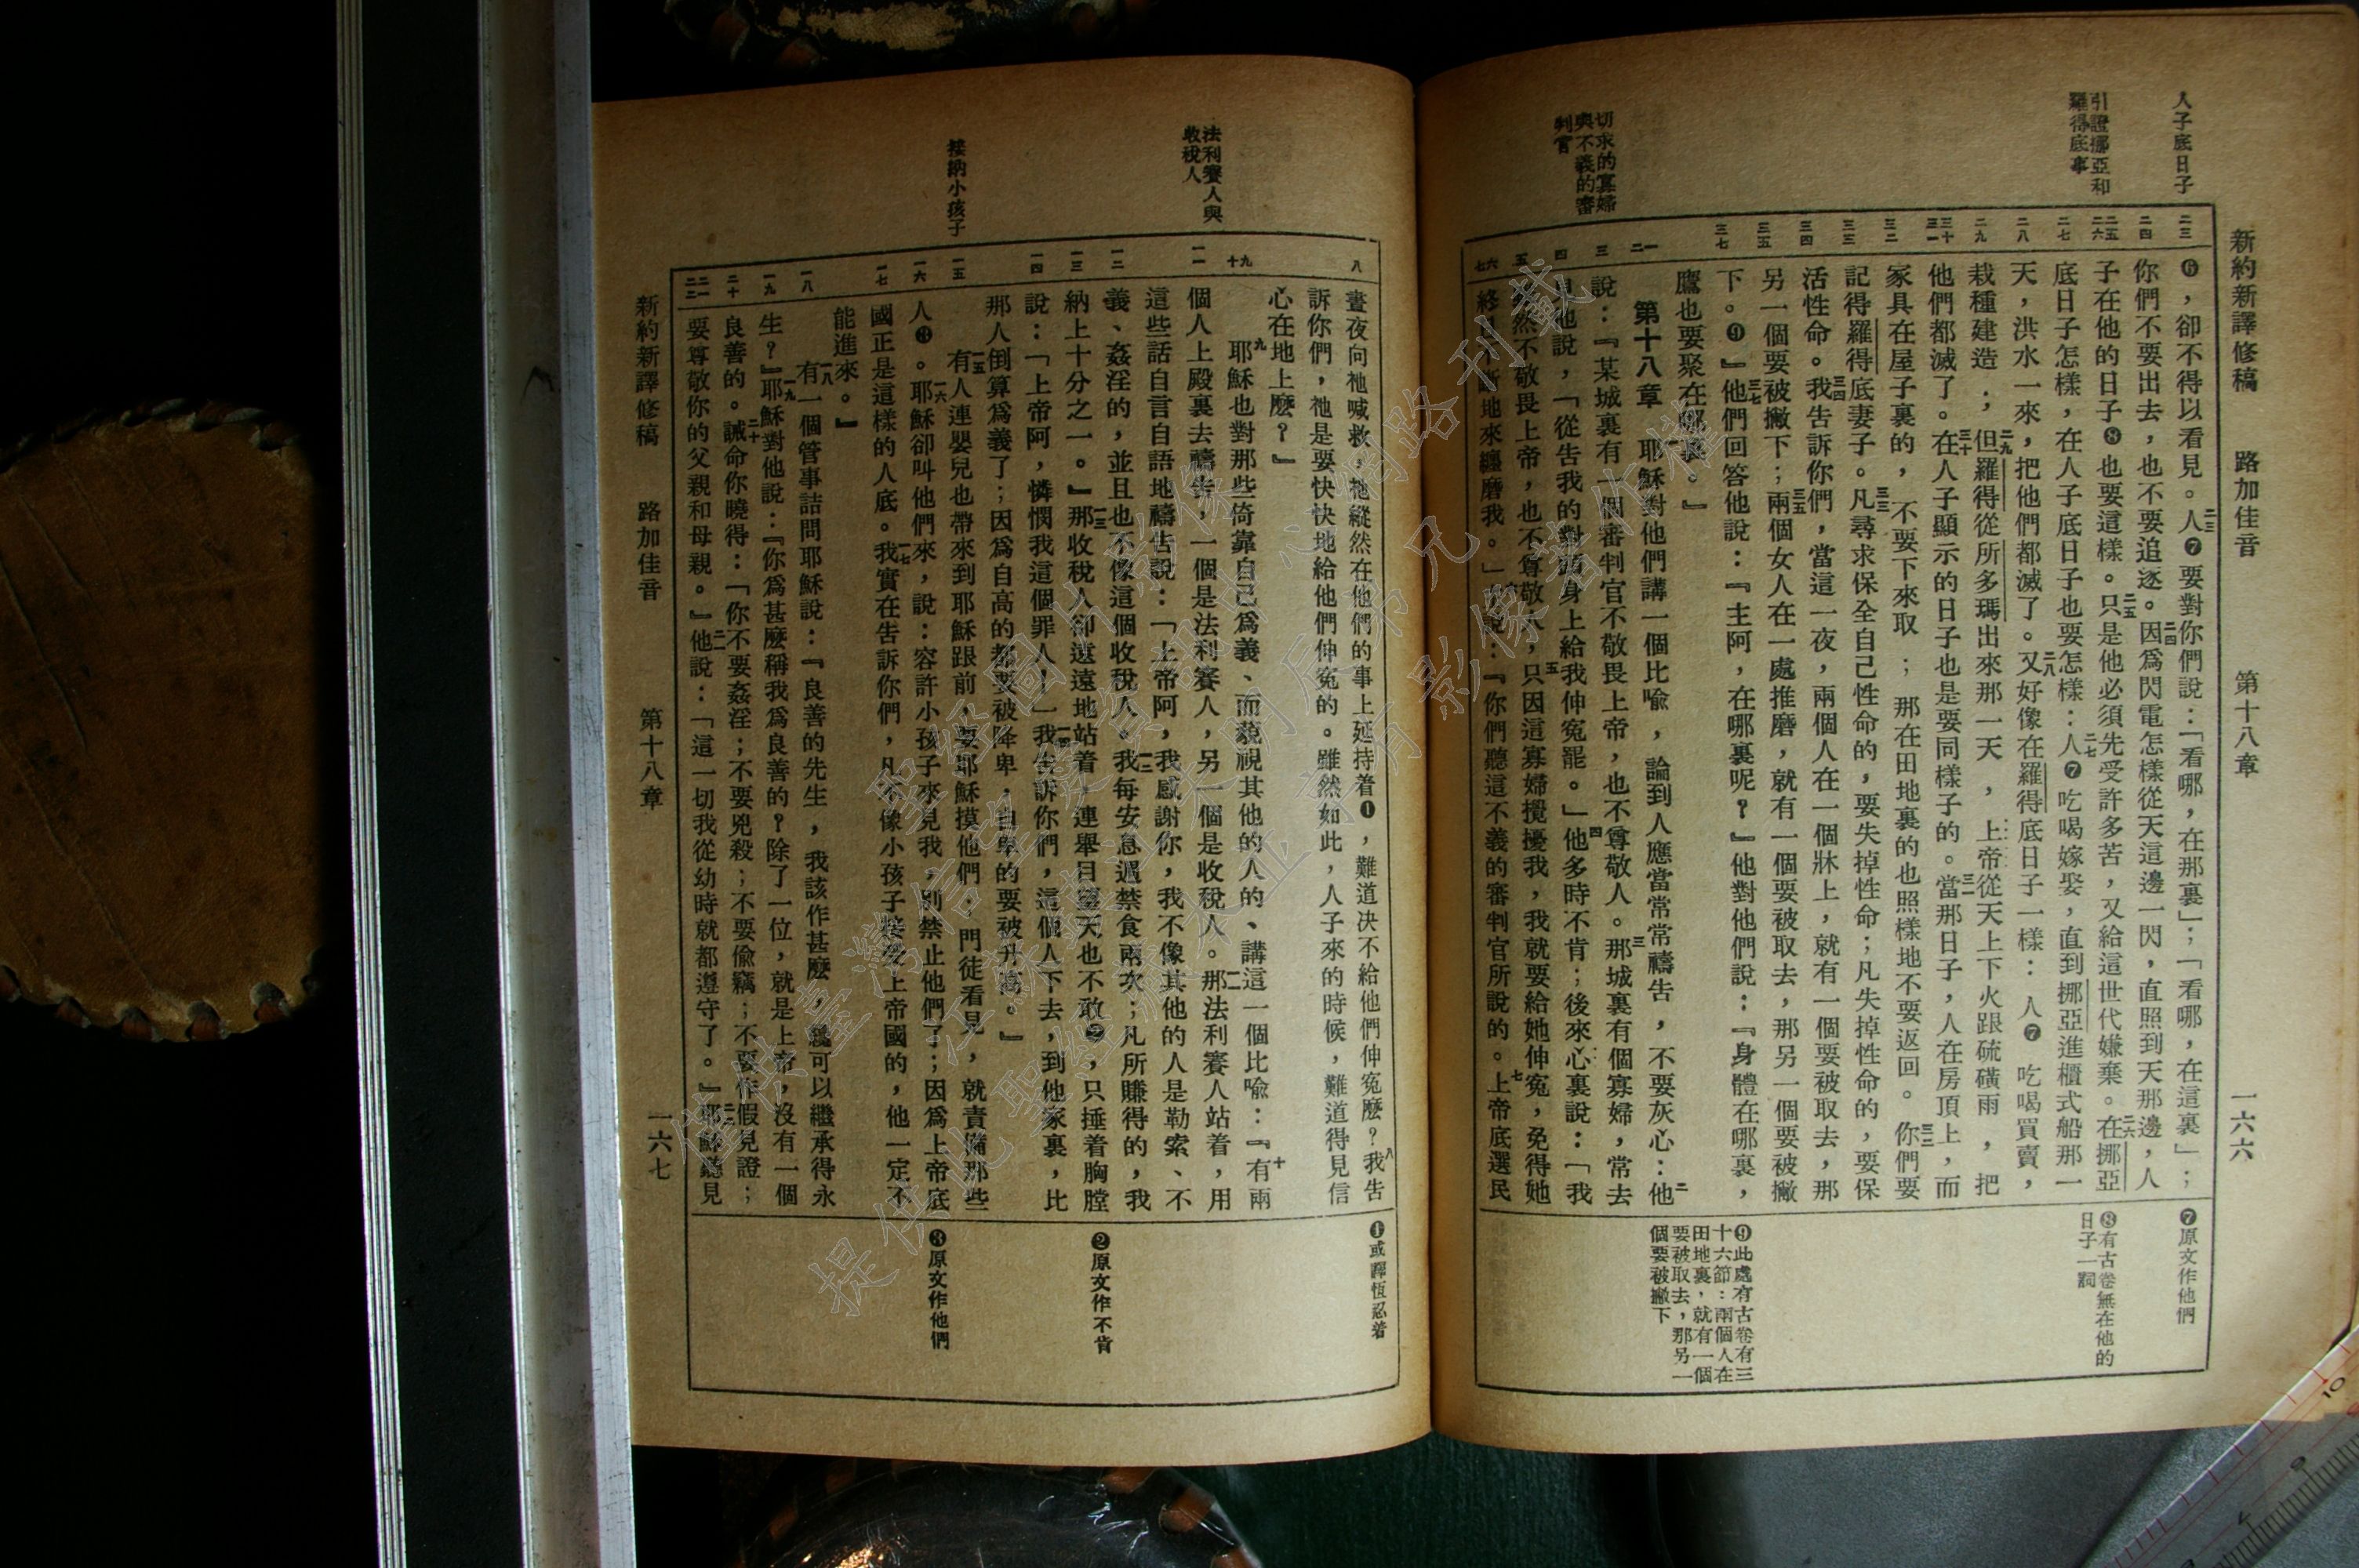 新約新譯修稿 路加佳音 第十八章 一六六
人子底日子
引證挪亞和
羅得底事
切求的寡婦
與不義的審
判官
二三 二四 二五 二六 二七 二八 二九 三十 三一 三二 三三 三四 三五 三七 一 二 三 四 五 六 七
❻，卻不得以看見。二三人❼要對你們說：「看哪，在那裏」；「看哪，在這裏」；
你們不要出去，也不要追逐。二四因爲閃電怎樣從天這邊一閃，直照到天那邊，人
子在他的日子❽也要這樣。二五只是他必須先受許多苦，又給這世代嫌棄。二六在挪亞
底日子怎樣，在人子底日子也要怎樣：二七人❼吃喝嫁娶，直到挪亞進櫃式船那一
天，洪水一來，把他們都滅了。二八又好像在羅得底日子一樣：人❼吃喝買賣，
栽種建造；二九但羅得從所多瑪出來那一天，上帝從天上下火跟硫磺雨，把
他們都滅了。三十在人子顯示的日子也是要同樣子的。三一當那日子，人在房頂上，而
家具在屋子裏的，不要下來取；那在田地裏的也照樣地不要返回。三二你們要
記得羅得底妻子。三三凡尋求保全自己性命的，要失掉性命；凡失掉性命的，要保
活性命。三四我告訴你們，當這一夜，兩個人在一個牀上，就有一個要被取去，那
另一個要被撇下；三五兩個女人在一處推磨，就有一個要被取去，那另一個要被撇
下。❾』三七他們回答他說：『主阿，在哪裏呢？』他對他們說：『身體在哪裏，
鷹也要聚在哪裏。』
第十八章 一耶穌對他們講一個比喻，論到人應當常常禱告，不要灰心：二他
說：『某城裏有一個審判官不敬畏上帝，也不尊敬人。三那城裏有個寡婦，常去
向他說，「從告我的對頭身上給我伸寃罷。」四他多時不肯；後來心裏說：「我
雖然不敬畏上帝，也不尊敬人，五只因這寡婦攪擾我，我就要給她伸寃，免得她
終日不斷地來纏磨我。」』六主說：『你們聽這不義的審判官所說的。七上帝底選民
❼原文作他們
❽有古卷無在他的
日子一詞
❾此處有古卷有三
十六節：兩個人在
田地裏，就有一個
要被取去，那另一
個要被撇下
法利賽人與
收稅人
接納小孩子
八 九 十 一一 一二 一三 一四 一五 一六 一七 一八 一九 二十 二一 二二
晝夜向祂喊救，祂縱然在他們的事上延持着❶，難道决不給他們伸寃麽？八我告
訴你們，祂是要快快地給他們伸寃的。雖然如此，人子來的時候，難道得見信
心在地上麽？』
九耶穌也對那些倚靠自己爲義、而藐視其他的人的、講這一個比喻：十『有兩
個人上殿裏去禱告，一個是法利賽人，另一個是收稅人。一一那法利賽人站着，用
這些話自言自語地禱告說：「上帝阿，我感謝你，我不像其他的人是勒索、不
義、姦淫的，並且也不像這個收稅人。一二我每安息週禁食兩次；凡所賺得的，我
納上十分之一。』一三那收稅人卻遠遠地站着，連舉目望天也不敢❷，只捶着胸膛
說：「上帝阿，憐憫我這個罪人！」一四我告訴你們，這個人下去，到他家裏，比
那人倒算爲義了；因爲自高的都要被降卑，自卑的要被升高。』
一五有人連嬰兒也帶來到耶穌跟前，要耶穌摸他們；門徒看見，就責備那些
人❸。一六耶穌卻叫他們來，說：容許小孩子來見我，別禁止他們了；因爲上帝底
國正是這樣的人底。一七我實在告訴你們，凡不像小孩子接受上帝國的，他一定不
能進來。』
一八有一個管事詰問耶穌說：『良善的先生，我該作甚麽，纔可以繼承得永
生？』一九耶穌對他說：『你爲甚麽稱我爲良善的？除了一位，就是上帝，沒有一個
良善的。二十誡命你曉得：「你不要姦淫；不要兇殺；不要偷竊；不要作假見證；
要尊敬你的父親和母親。』二一他說：「這一切我從幼時就都遵守了。』二二耶穌聽見
❶或譯恆忍着
❷原文作不肯
❸原文作他們
新約新譯修稿 路加佳音 第十八章 一六七